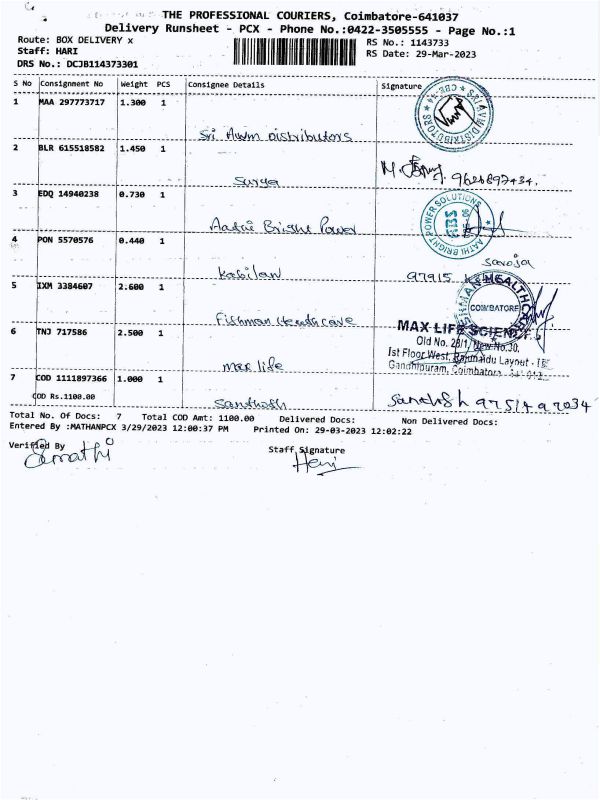 THE PROFESSIONAL COURIERS, Coimbatore-641037
Delivery Runsheet - PCX - Phone No.:0422-3505555 - Page No.:1
Route: BOX DELIVERY x
RS No.: 1143733
Staff: HARI
RS Date: 29-Mar-2023
DRS No.: DCJB114373301
S No Consignment No Weight PCS Consignee Details Signature
1 MAA 297773717 1.300 1
Sri Awm Distributors
2 BLR 615518582 1.450 1
Surya
3 EDQ 14940238 0.730 1
Aathi Bright Power
AATHI BRIGHT POWER SOLUTIONS
4 PON 5570576 0.440 1
Saroja
Kabilan 97915
5 IXM 3384607 2.600 1
COIMBATORE
Fishman Healthcare
6 TNJ 717586 2.500 1
MAX LIFE SCIENCE
Old No. 28/1, New No.30,
Ist Floor West, Rajunaidu Layout
Gandhipuram, Coimbatore
max life
7 COD 1111897366 1.000 1
COD Rs.1100.00
Santhosh
Total No. Of Docs: 7 Total COD Amt: 1100.00 Delivered Docs: Non Delivered Docs:
Entered By :MATHANPCX 3/29/2023 12:00:37 PM Printed On: 29-03-2023 12:02:22
Verified By Staff Signature
Hari